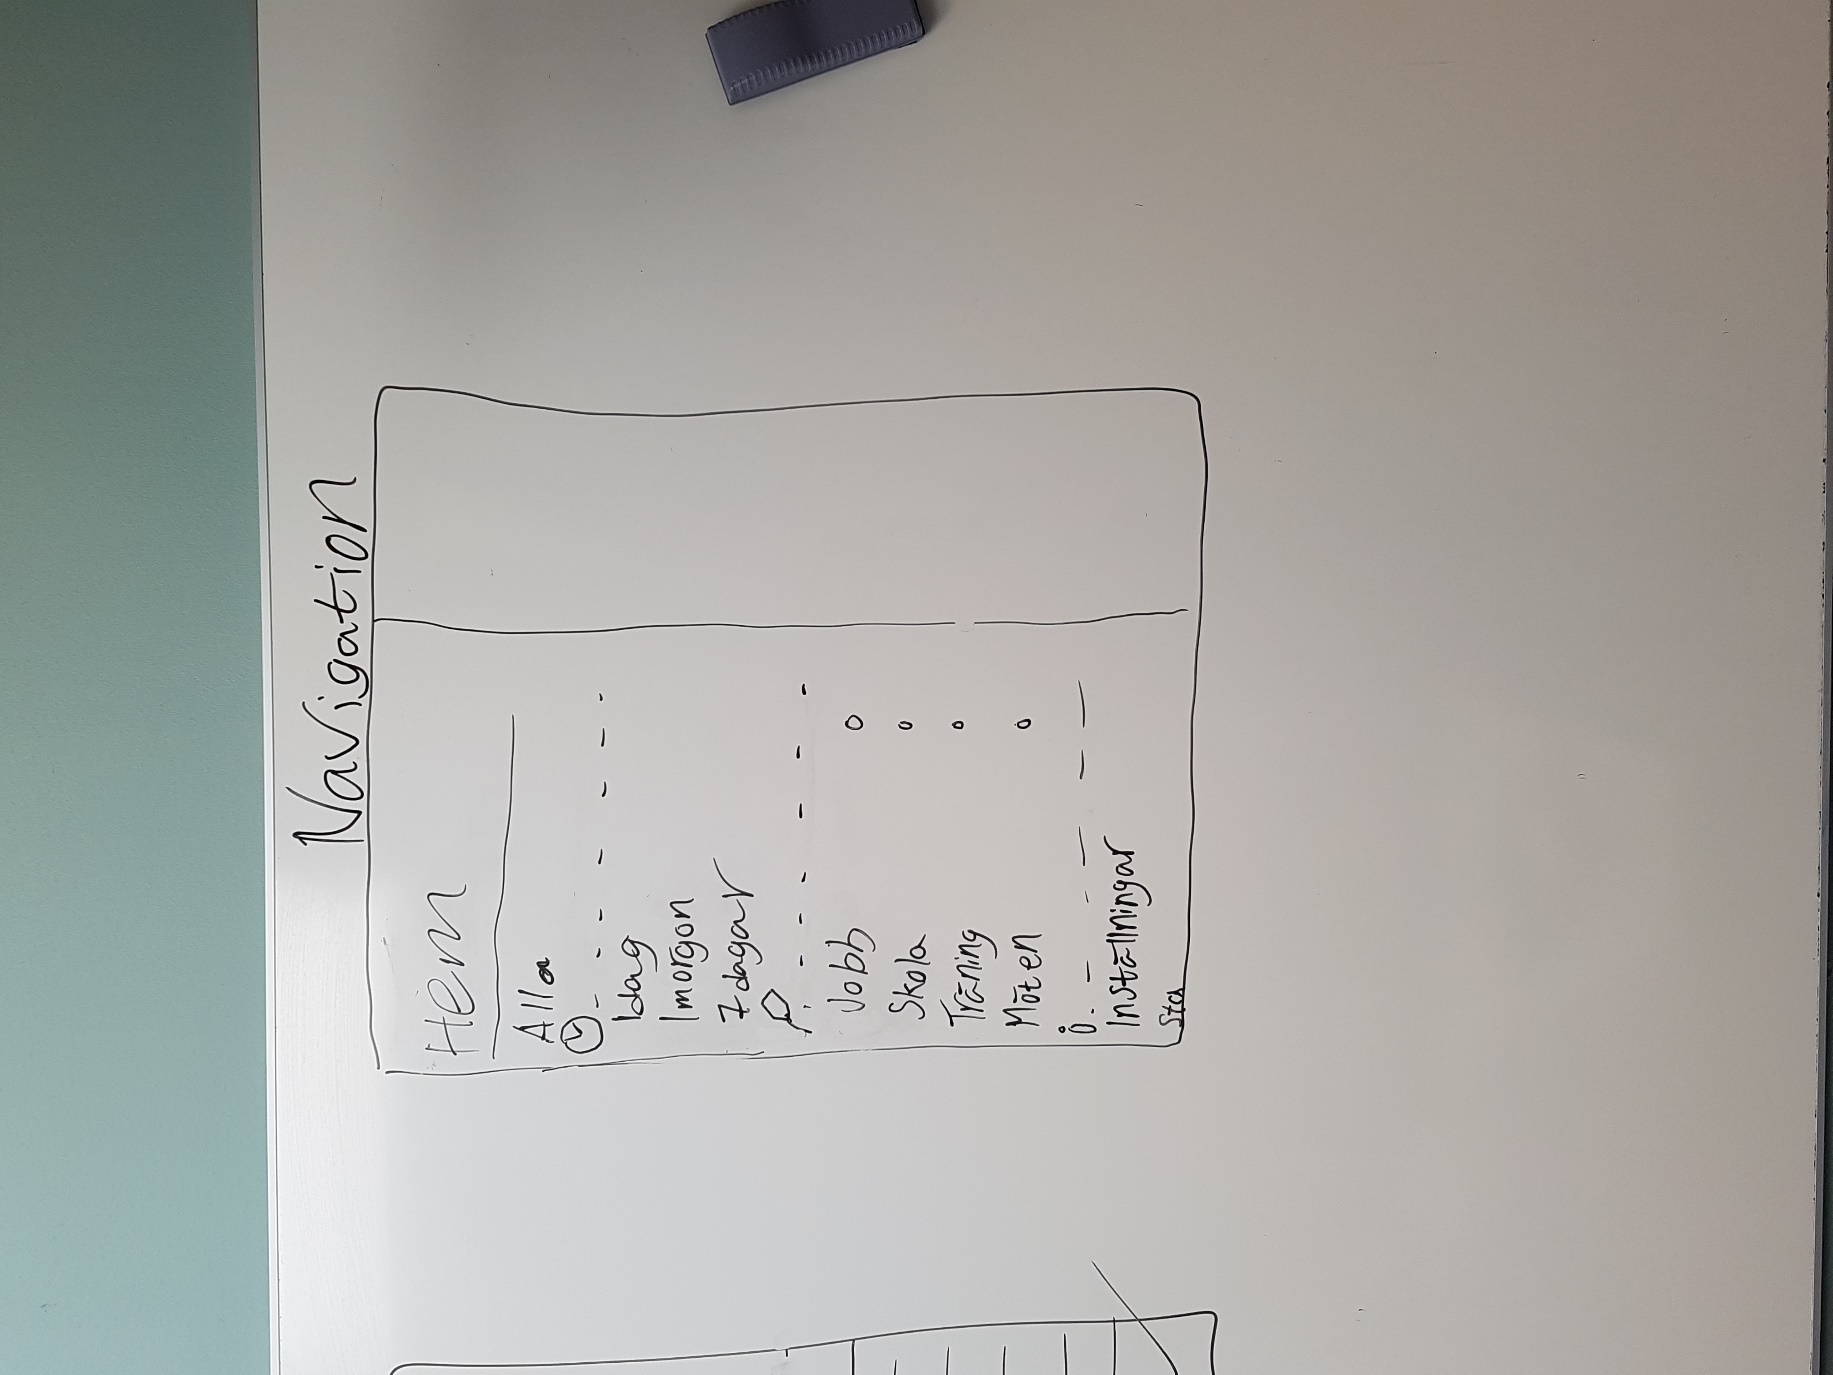 Navigation
Hem
Alla
Idag
Imorgon
7 dagar
Jobb
Skola
Träning
Möten
Inställningar